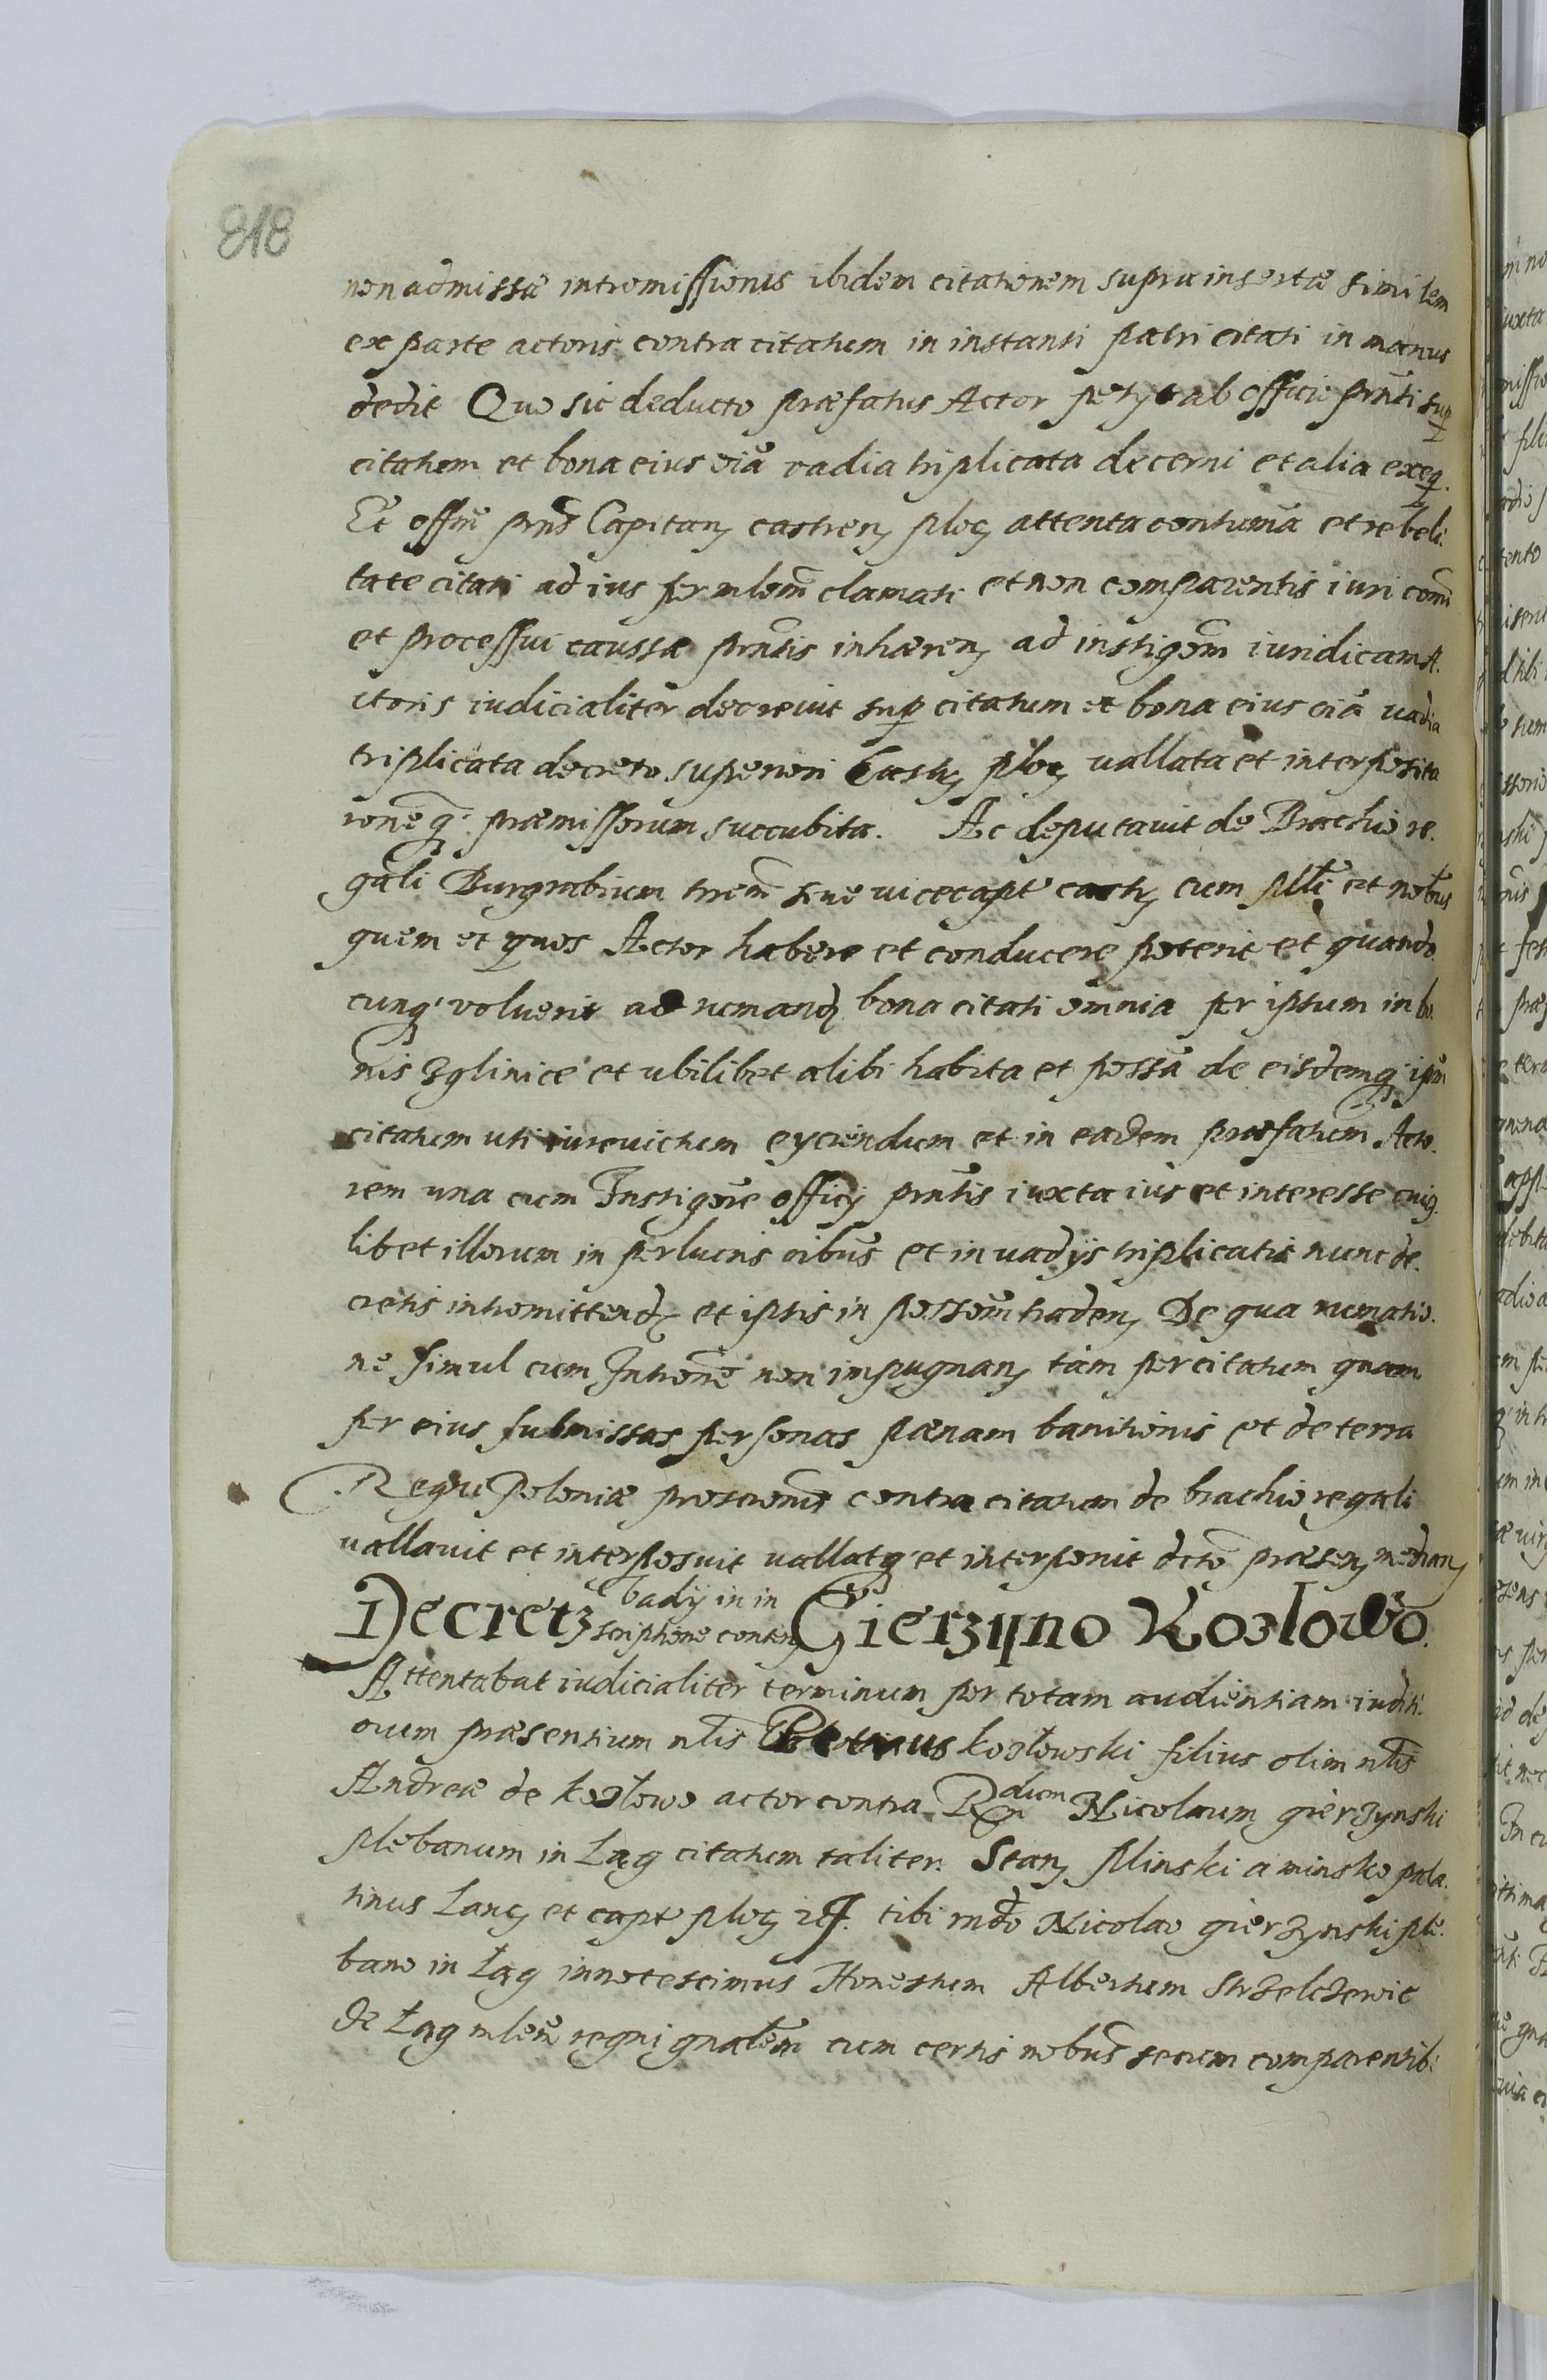 818
non admissæ intromissionis ibidem citationem supra insertæ similem
ex parte actoris contra citatum in instanti patri citati in manus
dedit Quo sic deducto præfatus Actor petyt ab officio prnti sup
citatum et bona eius oiã vadia triplicata decerni et alia exeq.
Et offm prns Capitan castren ploc attenta contuma et rebeli
tate citati ad ius per mlem clamati et non comparentis iuri comi
et processui caussæ prntis inhæren ad instigom iuridicam A.
ctoris iudicialiter decrevit sup citatum et bona eius oiã vadia
triplicata decreto superiori Castr ploc vallata et interposita
ione q præmissorum succubita. Ac deputavit de Brachio re.
gali Burgrabium trrem sive vicecapt castr cum mlte et nobus
quem et quos Actor habere et conducere poterit et quando.
cunq voluerit ad rumand bona citati omnia per ipsum in bo.
nis Zglinice et ubilibet alibi habita et possã de eisdemq ipm
citatum uti iurevictum eyciendum et in eadem præfatum Acto.
rem una cum Instigore officy prntis iuxta ius et interesse cuiq.
libet illorum in perlucris oibus et in vadys triplicatis nunc de.
cretis intromittend et ipsis in possem traden De qua rumatio.
ne simul cum Introne non impugnan tam per citatum quam
per eius submissas personas pænam banitionis et de terra
Regni Poloniæ proscronis contra citatum de brachio regali
vallavit et interposuit vallatq et interponit dcto præsen median
Decretz vady in in
scriptione conten Gierzyno Kozlowo.
Attentabat iudicialiter terminum per totam audientiam iuditi.
orum præsentium nlis kozłowski filius olim nlis
Andreæ de kozłowo actor contra Rndum Nicolaum gierzynski
plebanum in Łag citatum taliter. Stan Minski a minsko pala.
tinus Lanc et capt ploc itf. tibi rndo Nicolao gierzynski ple.
bano in Łag innotescimus Honestum Albertum Strzelczewic
de Łag mlem regni gnalem cum certis nobus secum comparentib.